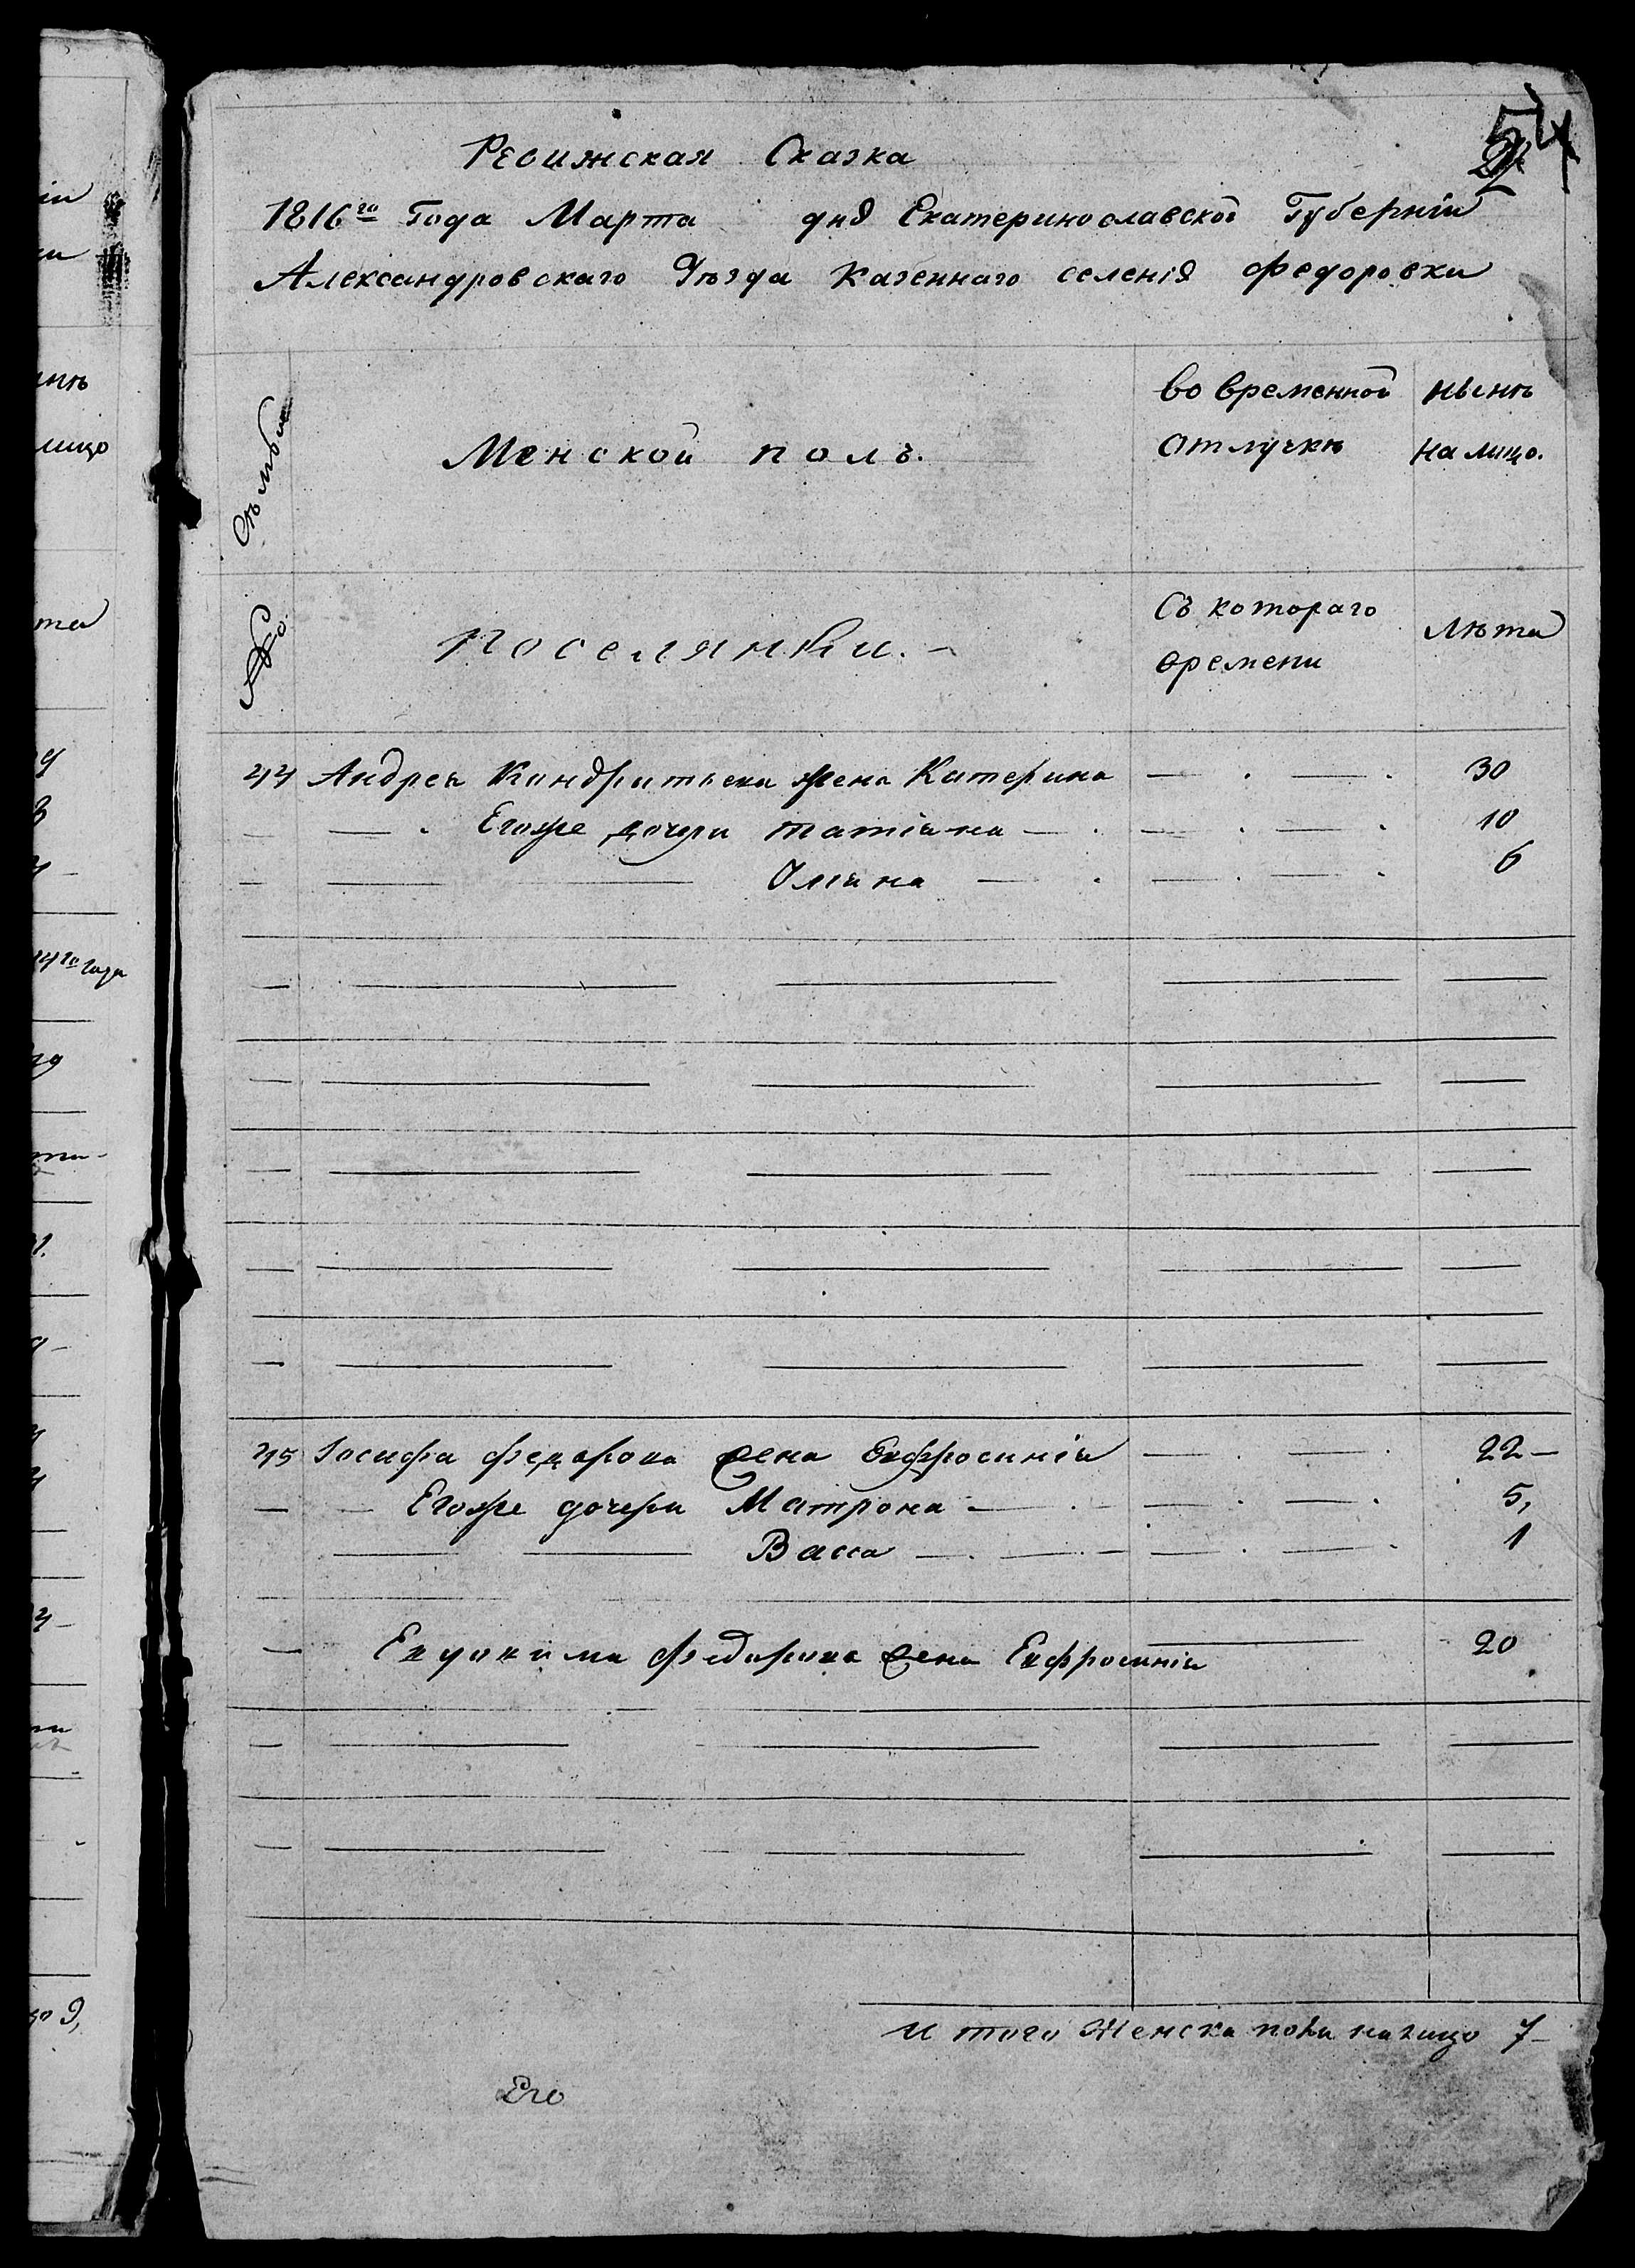 54
Ревижская Сказка
1816го Года Марта дня Екатеринославской Губерніи
Александровскаго Уѣзда Казеннаго селенія Федоровки
Семьи
Менской полъ.
во временной отлучкѣ
нынѣ на лицо.
№
Поселянки.
Съ котораго времени
Лѣта
44 Андрея Кандратьева жена Катерина — . — . 30
— — . Егоже дочери татіана — . — . — . 10
— — — Уліяна — . — . — . 6
45 Іосифа Федорова жена Евфросинія — — . 22 —
— — Егоже дочери Матрона — . — — . — . 5,
— — Васса — . — . — — . — . 1
— Евдокима Федорова жена Евфросинія — 20
и того Женска пола налицо 7 —
Его